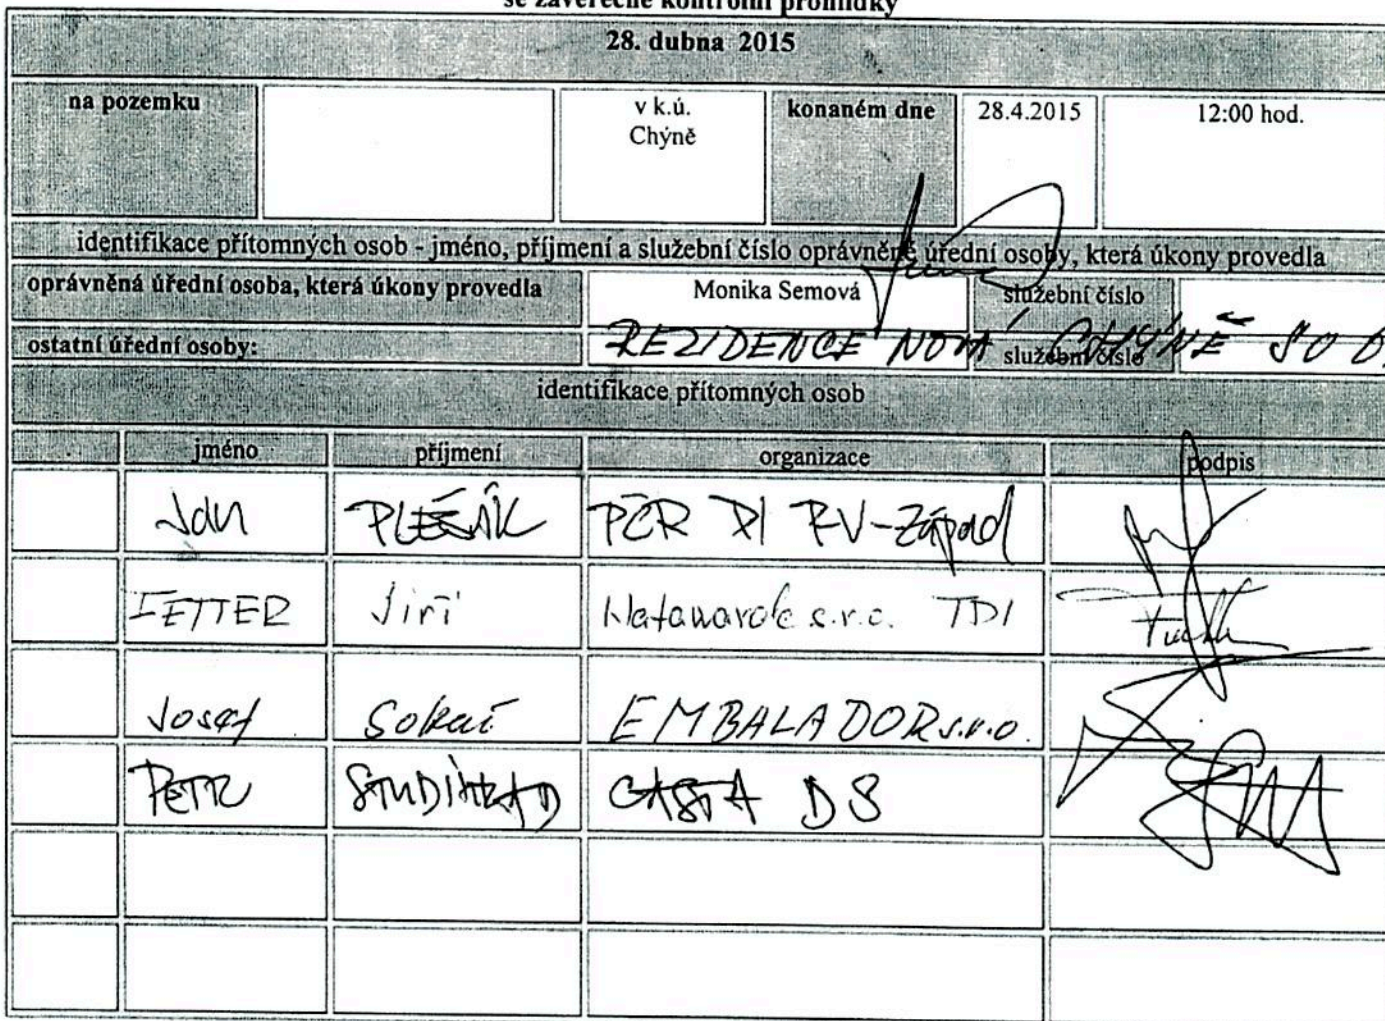 se závěrečné kontrolní prohlídky
28. dubna 2015
na pozemku v k.ú. konaném dne 28.4.2015 12:00 hod.
Chýně
identifikace přítomných osob - jméno, příjmení a služební číslo oprávněné úřední osoby, která úkony provedla
oprávněná úřední osoba, která úkony provedla Monika Semová služební číslo
ostatní úřední osoby: služební číslo
REZIDENCE NOVÁ CHÝNĚ SO
identifikace přítomných osob
jméno příjmení organizace podpis
Jan PČR DI PV-Západ
FETTER Jiří s.r.o. TDI
Josef EMBALADOR s.r.o.
PETR CASTA